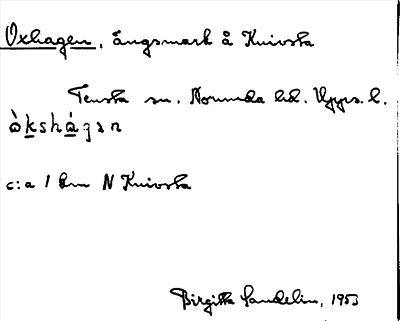 Oxhagen, Ängsmark å Knivsta
Tensta sn. Norunda hd. Upps. l.
ò̀kshá̀gən
c:a 1 km N Knivsta
Birgitta Sandelin, 1953